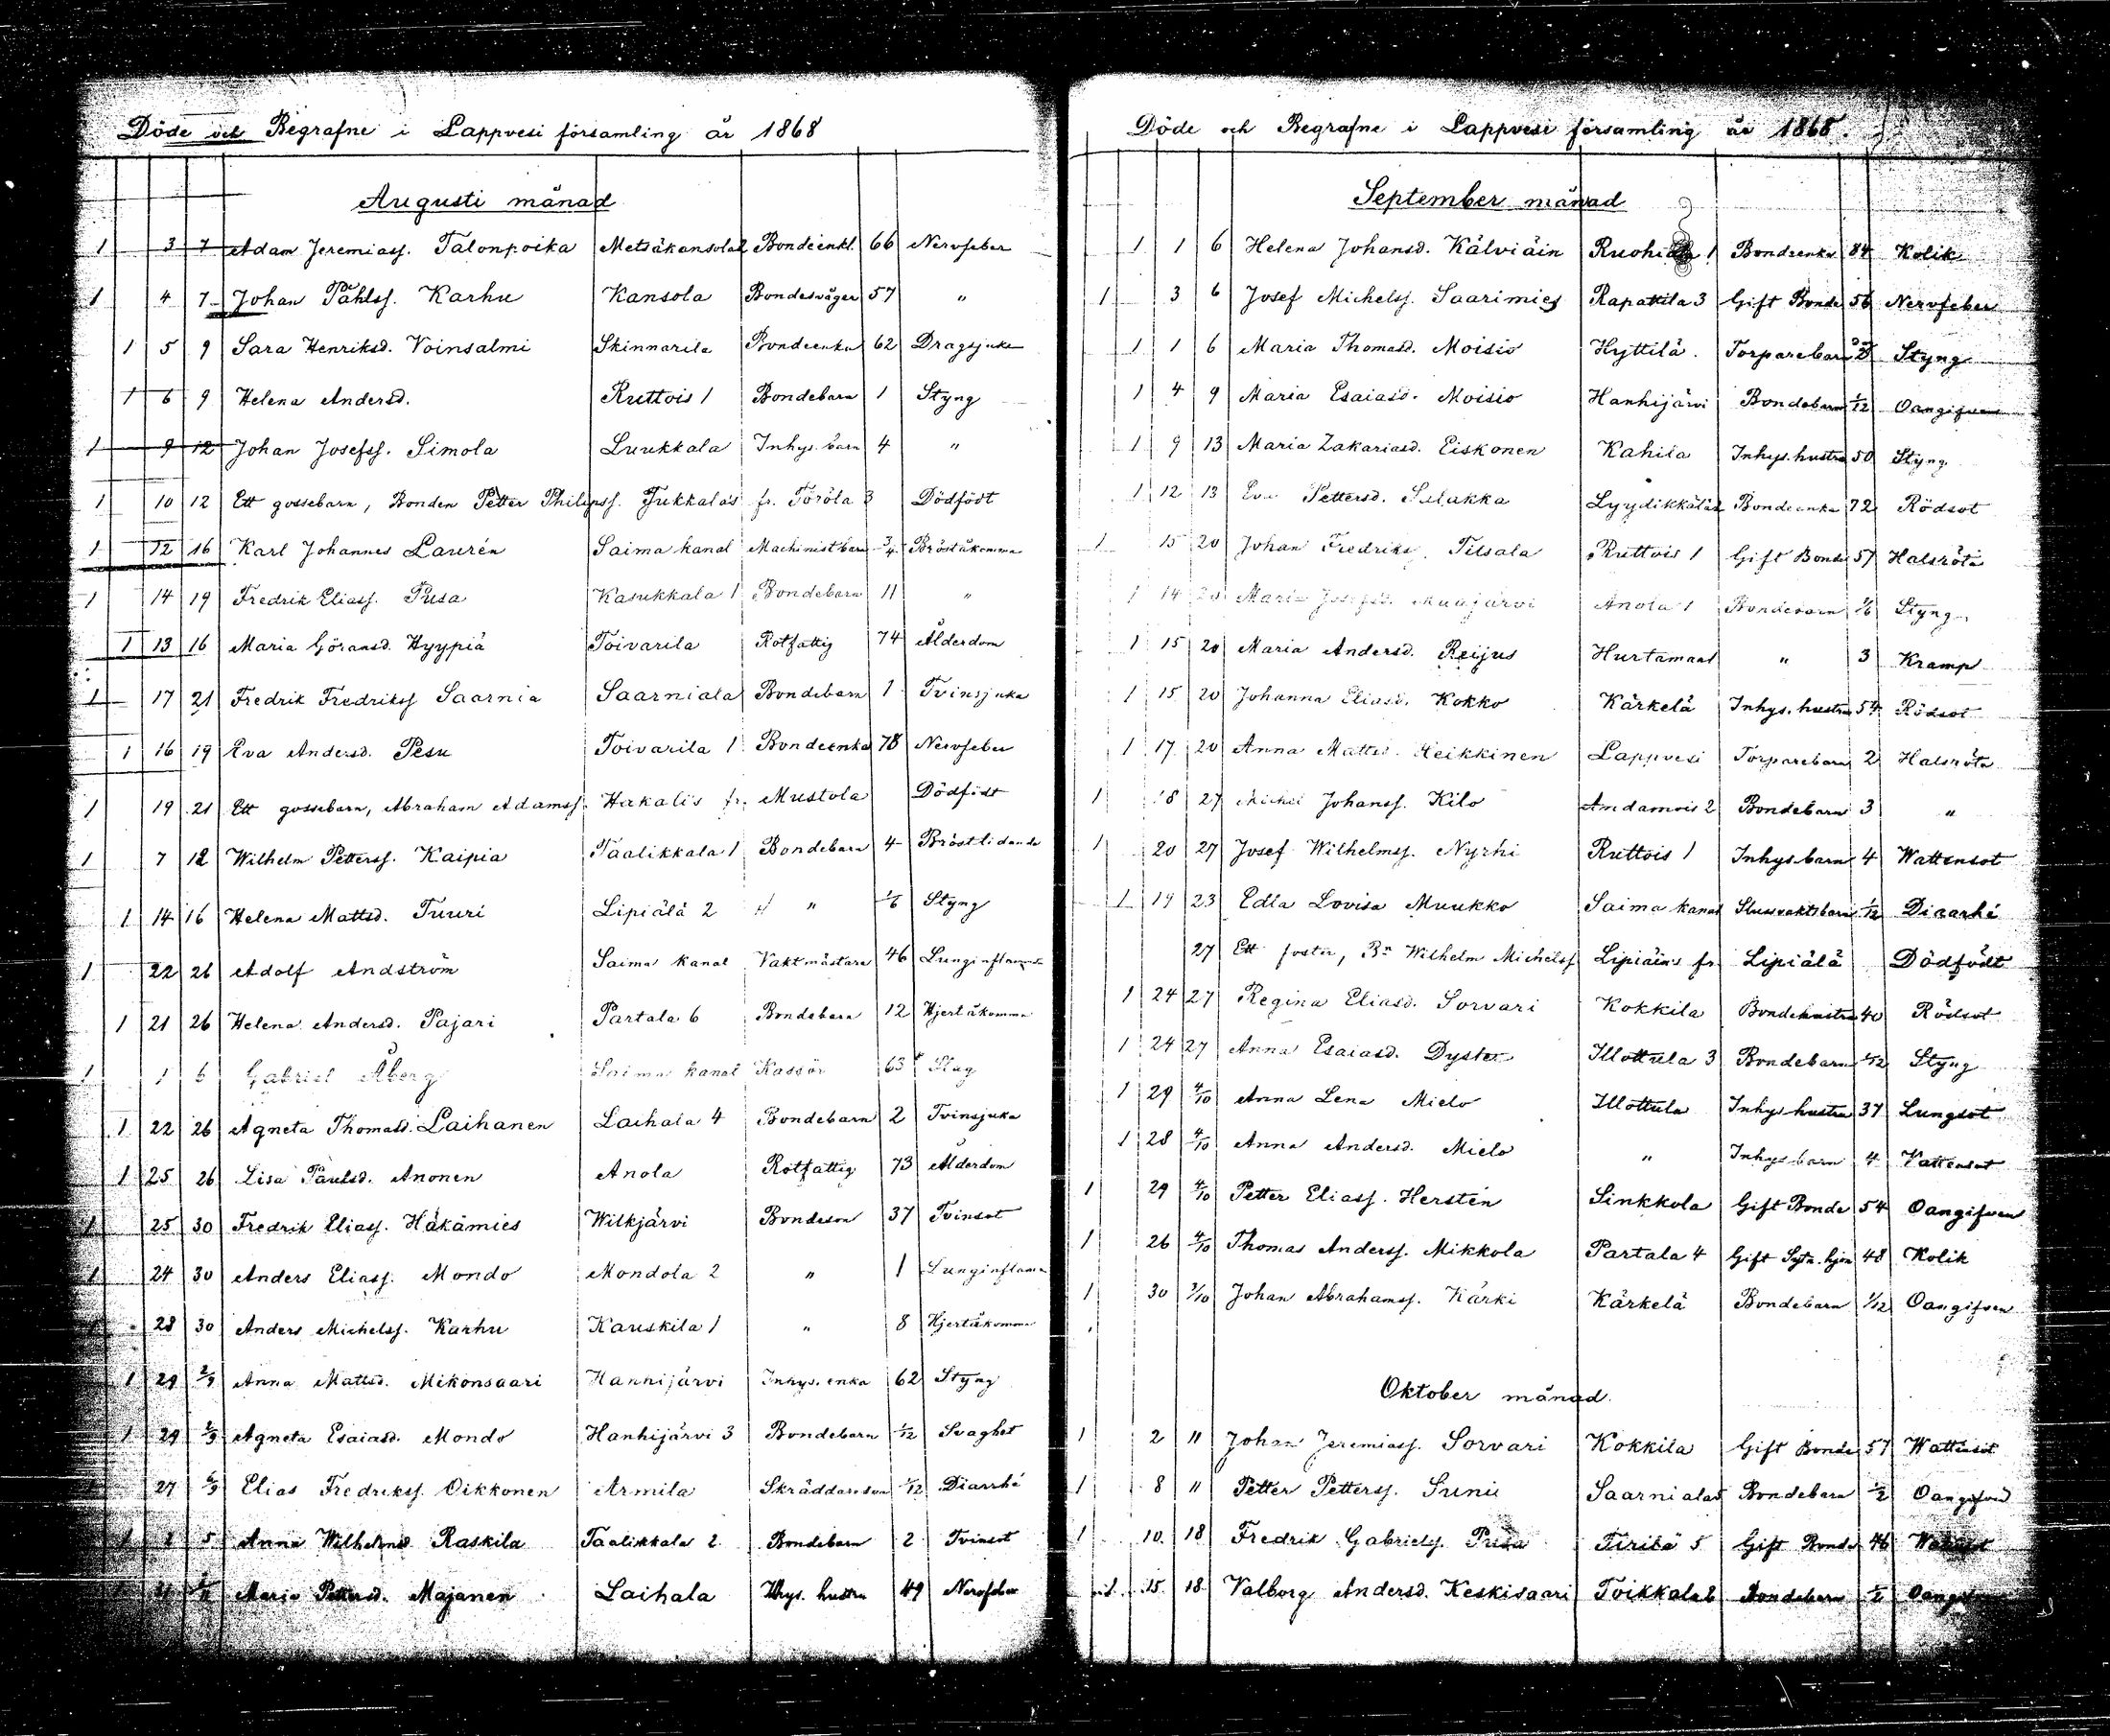 Döde och Begrafne i Lappvesi församling år 1868
Augusti månad
1 3 7 Adam Jeremiass. Talonpoika Metsäkansola 2 Bondeenkl. 66 Nervfeber
1 4 7 Johan Påhlss. Karhu Kansola Bondesvåger 57 "
1 5 9 Sara Henriksd. Voinsalmi Skinnarila Bondeenka 62 Dragsjuka
1 6 9 Helena Andersd. Ruttois 1 Bondebarn 1 Styng
1 9 12 Johan Josefss. Simola Luukkala Inhys. barn 4 "
1 10 12 Ett gossebarn, Bonden Petter Philipss. Jukkalas fr. Toröla 3 Dödfödt
1 12 16 Karl Johannes Laurén Saima kanal Machinistbarn 3/4 Bröståkomma
1 14 19 Fredrik Eliass. Pusa Kasukkala 1 Bondebarn 11 "
1 13 16 Maria Göransd. Hyypiä Toivarila Rotfattig 74 Ålderdom
1 17 21 Fredrik Fredrikss Saarnia Saarniala Bondebarn 1 Tvinsjuka
1 16 19 Eva Andersd. Pesu Toivarila 1 Bondeenka 78 Nervfeber
1 19 21 Ett gossebarn, Abraham Adamss. Hakalis fr. Mustola Dödfödt
1 7 12 Wilhelm Petterss. Kaipia Taalikkala 1 Bondebarn 4 Bröstlidande
1 14 16 Helena Mattsd. Tuuri Lipiälä 2 " " 1/6 Styng
1 22 26 Adolf Andström Saima kanal Vaktmästare 46 Lunginflamm
1 21 26 Helena Andersd. Pajari Partala 6 Bondebarn 12 Hjertåkomma
1 1 6 Gabriel Åberg Saima kanal Kassör 63 Slag
1 22 26 Agneta Thomasd. Laihanen Laihala 4 Bondebarn 2 Tvinsjuka
1 25 26 Lisa Paulsd. Anonen Anola Rotfattig 73 Ålderdom
1 25 30 Fredrik Eliass. Häkämies Wilkjärvi Bondeson 37 Tvinsot
1 24 30 Anders Eliass. Mondo Mondola 2 " 1 Lunginflamm
28 30 Anders Michelss. Karhu Kauskila 1 " 8 Hjertåkomma
1 29 2/9 Anna Mattsd. Mikonsaari Hanhijärvi Inhys. enka 62 Styng
1 29 2/9 Agneta Esaiasd. Mondo Hanhijärvi 3 Bondebarn 1/12 Svaghet
27 Elias Fredrikss. Oikkonen Armila Skräddareson 1/12 Diarrhé
Anna Wilhelmsd Raskila Taalikkala 2 Bondebarn 2 Tvinsot
Maria Pettersd. Majanen Laihala Inhys. hustru 49 Nervfeber
Döde och Begrafne i Lappvesi församling år 1868.
September månad
1 1 6 Helena Johansd. Kälviäin 1 Bondeenka 84 Kolik
1 3 6 Josef Michelss. Saarimies Rapattila 3 Gift Bonde 56 Nervfeber
1 1 6 Maria Thomasd. Moisio Hyttilä. Torparebarn Styng
1 4 9 Maria Esaiasd. Moisio Hanhijärvi Bondebarn 1/12 Oangifven
1 9 13 Maria Zakariasd. Eiskonen Kahila Inhys. hustru 50 Styng
1 12 13 Eva Pettersd. Salakka Lyydikkälä 2 Bondeenka 72 Rödsot
1 15 20 Johan Fredriks. Tilsala Ruttois 1 Gift Bonde 57 Halsröta
1 14 20 Maria Josefsd. Muajärvi Anola 1 Bondebarn 1/6 Styng
1 15 20 Maria Andersd. Reijus Hurtamaal " 3 Kramp
1 15 20 Johanna Eliasd. Kokko Kärkelä Inhys. hustru 54 Rödsot
1 17 20 Anna Mattsd. Heikkinen Lappvesi Torparebarn 2 Halsröta
1 18 27 Michel Johanss. Kilo Andamois 2 Bondebarn 3 "
1 20 27 Josef Wilhelmss. Nyrhi Ruttois 1 Inhys. barn 4 Wattensot
1 19 23 Edla Lovisa Muukko Saima kanal Slussvaktsbarn 1/12 Diaarhé
27 Ett foster, Bn Wilhelm Michelss Lipiäins fr Lipiälä Dödfödt
1 24 27 Regina Eliasd. Sorvari Kokkila Bondehustru 40 Rödsot
1 24 27 Anna Esaiasd. Dyster Illottula 3 Bondebarn 1/12 Styng
1 29 4/10 Anna Lena Mielo Illottula Inhys hustru 37 Lungsot
1 28 4/10 Anna Andersd. Mielo " Inhys barn 4 Vattensot
1 29 4/10 Petter Eliass. Herstén Sinkkola Gift Bonde 54 Oangifven
1 26 4/10 Thomas Anderss. Mikkola Partala 4 Gift Sytn. hjon 48 Kolik
1 30 3/10 Johan Abrahamss. Kärki Kärkelä Bondebarn 1/12 Oangifven
Oktober månad.
1 2 11 Johan Jeremiass. Sorvari Kokkila Gift Bonde 57 Wattusot
1 8 11 Petter Petterss. Suni Saarniala 5 Bondebarn 1/2 Oangifven
1 10 18 Fredrik Gabrielss. Pusa Tirilä 5 Gift Bonde 46
1 15 18 Valborg Andersd. Keskisaari Toikkala 2 Bondebarn 1/2